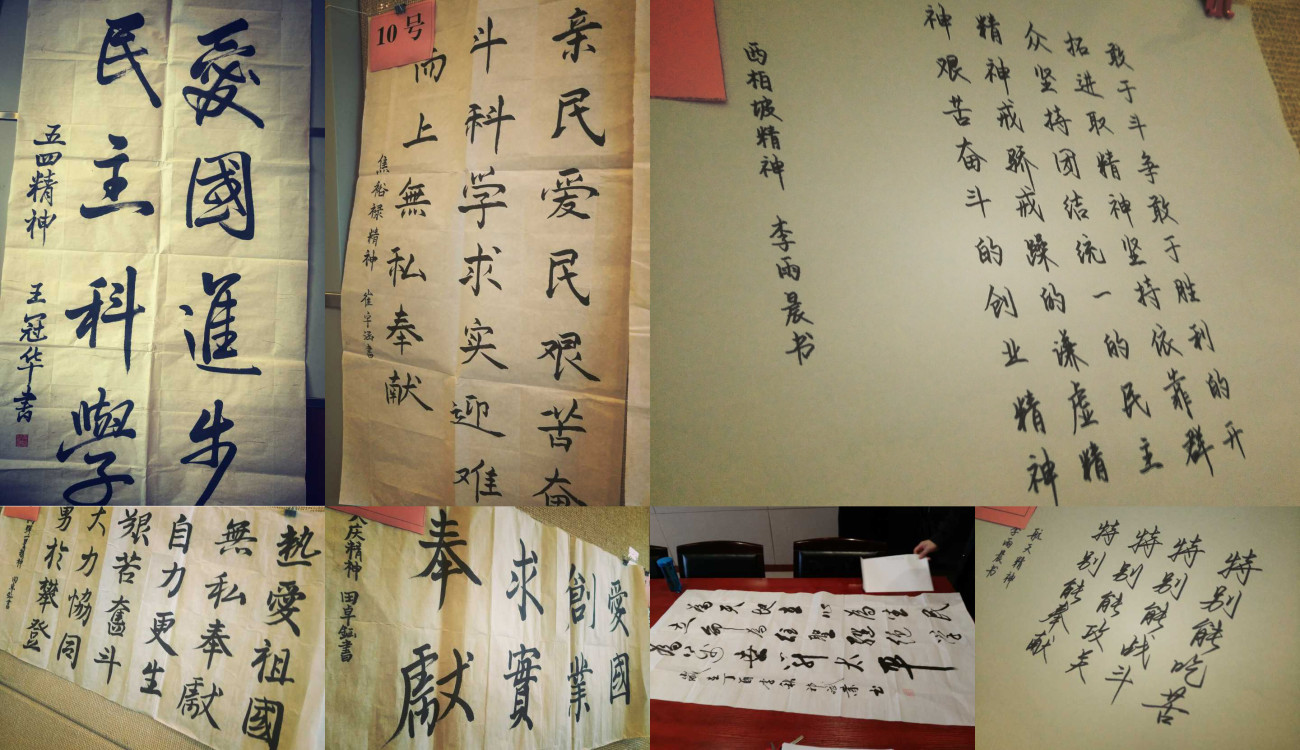 愛國進步
民主科學
五四精神 王冠华書
10号
亲民爱民艰苦奋
斗科学求实迎难
而上無私奉献
焦裕禄精神 崔宇涵書
敢于斗争敢于胜利的开
拓进取精神坚持依靠群
众坚持团结统一的民主
精神戒骄戒躁的谦虚精
神艰苦奋斗的创业精神
西柏坡精神 李雨晨书
熱愛祖國
無私奉獻
自力更生
艱苦奮斗
大力協同
勇於攀登
愛國
創業
求實
奉獻
大庆精神 田卓鈺書
為天地立心為生民
立命為往聖继绝学
為萬世開太平
特别能吃苦
特别能战斗
特别能攻关
特别能奉献
航天精神
李雨晨书